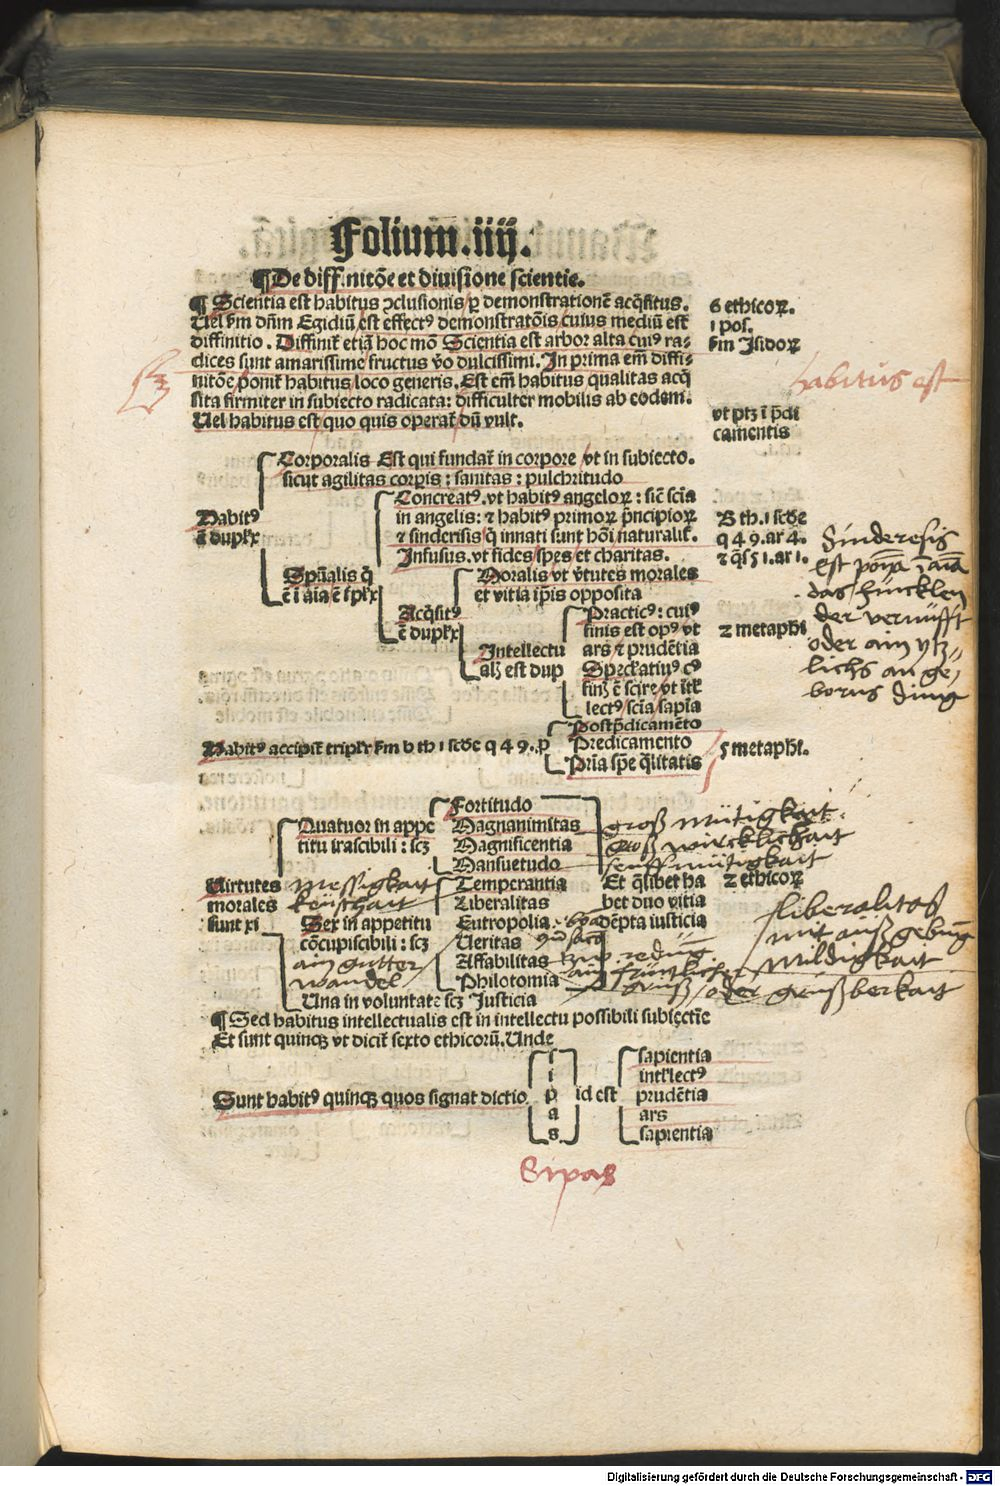 Folium .iiij.
¶ De diffinitōe et diuisione scientie.
¶ Scientia est habitus ꝯclusionis ꝑ demonstrationē acq̄situs.
Uel ẜm dn̄m Egidiū est effectꝰ demonstratōis cuius mediū est
diffinitio. Diffinit̄ etiā hoc mō Scientia est arbor alta cuiꝰ ra-
dices sunt amarissime fructus ṽo dulcissimi. In prima em̄ diffi-
nitōe ponit̄ habitus loco generis. Est em̄ habitus qualitas acq̄
sita firmiter in subiecto radicata: difficulter mobilis ab eodem.
Uel habitus est quo quis operat̄ dū vult.
6 ethicoꝝ.
1 pos.
ẜm Isidoꝝ
habitus est
vt ptꝫ ī p̄di
camentis
Habitꝰ
ē duplꝛx
Corporalis Est qui fundat̄ in corpore vt in subiecto.
sicut agilitas corꝑis: sanitas: pulchritudo
Spūalis q̄
ē ī aīa ē
Concreatꝰ. vt habitꝰ angeloꝝ: sic̄ scīa
in angelis: ⁊ habitꝰ primoꝝ p̄ncipioꝝ
⁊ sinderisis q̄ innati sunt hōi naturalit̄.
Infusus. vt fides spes et charitas.
Acq̄sitꝰ
ē duplꝛx
Moralis vt ṽtutes morales
et vitia ip̄is opposita
Intellectu
alꝭ est dup
Practicꝰ: cuiꝰ
finis est opꝰ vt
ars ⁊ prudētia
Speculatiuꝰ cꝰ
finꝭ ē scire vt
lectꝰ scīa sapīa
B th. 1 scd̄e
q 49. ar 4.
⁊ q̄s 51. ar 1.
2 metaphi
Sinderesis
est
das füncklen
der vernüfft
oder ain ytz-
lichs an ge-
borns ding
Habitꝰ accipit̄ triplr̄ ẜm b th 1 scd̄e q 49. p
Postp̄dicamēto
Predicamento
Prīa spē q̄litatis
5 metaphi.
Virtutes
morales
sunt xi
Quatuor in appe
titu irascibili: scꝫ
Fortitudo
Magnanimitas
Magnificentia
Mansuetudo
groß mütigkait.
groß wircklichait
senfftmütigkait
messigkait
keüschait
Sex in appetitu
cōcupiscibili: scꝫ
ain gutter
wandel
Temperantia
Liberalitas
Eutropolia
Ueritas
Affabilitas
Philotomia
Et q̄libet ha
bet duo vitia
dēpta iusticia
2 ethicoꝝ
liberalitas
mit auß gebung
mildigkait
Una in voluntate scꝫ Justicia
¶ Sed habitus intellectualis est in intellectu possibili subiectīe
Et sunt quinqꝫ vt dicit̄ sexto ethicorū. Unde
Sunt habitꝰ quinqꝫ quos signat dictio
s
i
p
a
s
id est
sapientia
intellectꝰ
prudētia
ars
sapientia
Sipas
Digitalisierung gefördert durch die Deutsche Forschungsgemeinschaft - DFG